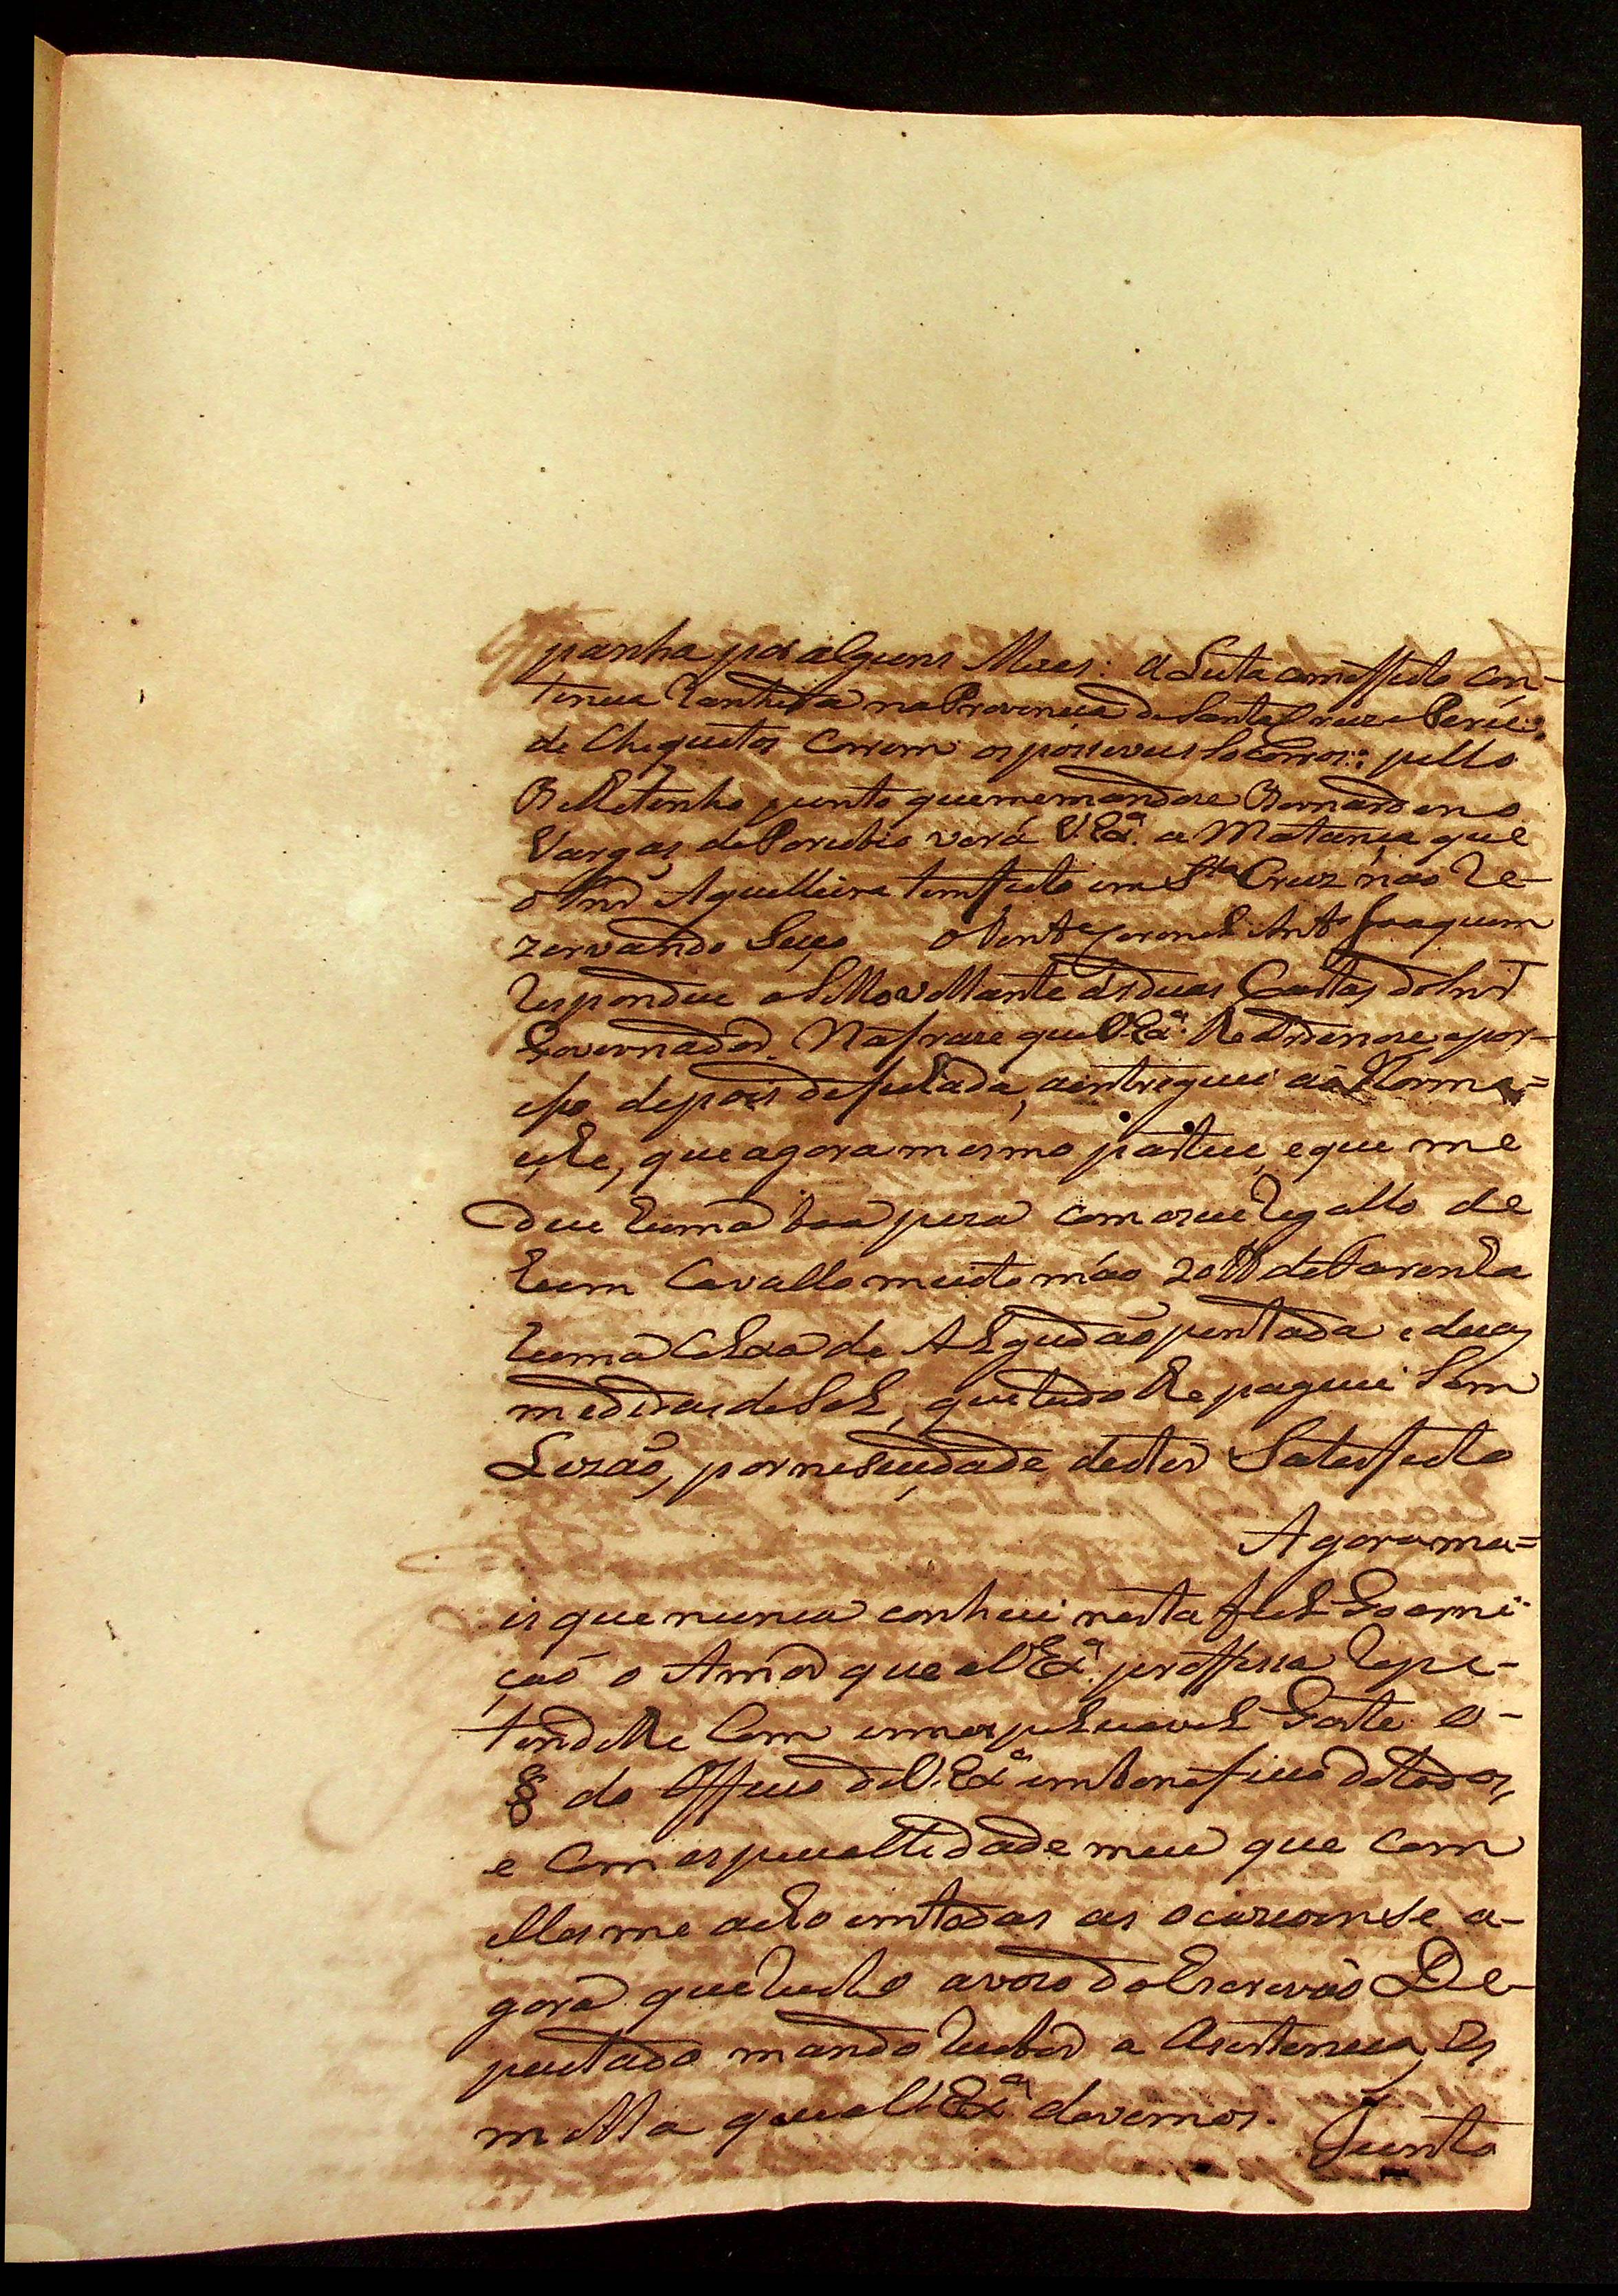 panha por alguns Mezes: a Luta com effeito con-
tinua renhida na Provincia de Santa Cruz e Perú:
de Chiquitos correm os possiveis socorros: pello
Bilhetinho junto que me mandou Bernardino
Vargas de Porubio verá V. Exª. a Matança que
o Snr Aguilleira tem feito em Sta Cruz não re-
zervando Sexo O Tente Coronel Antº Joaquim
respondeu a Similhante ás duas Cartas do Snr
Governador. Na fraze que V. Exª. lhe ordenou e por-
isso depois de fexada, a entreguei ao Torma=
exe, que agora mesmo partiu, e que me
deu huma boa peza com o seu regallo de
hum Cavallo muito máo 20 lb de farenha
huma Colxa de Algudão pintada e duas
medidas de Sal, que tudo lhe paguei Sem
Lezão, por nescidade de ter Satisfeito
Agora ma=
is que nunca conheci nesta fiel Goarni-
ção o Amor que a V Exª. proffessa repe-
tindolhe Com innexplicavel Goste o
§ do Officio de V. Exª em beneficio de todos,
e Com espicialidade meu que Com
elles me acho em todas as ocazioens e a-
gora que recebo avizo do Escrivão De-
putado mando receber a Asistencia, Es
molla que a V Exª. devemos.
Junto